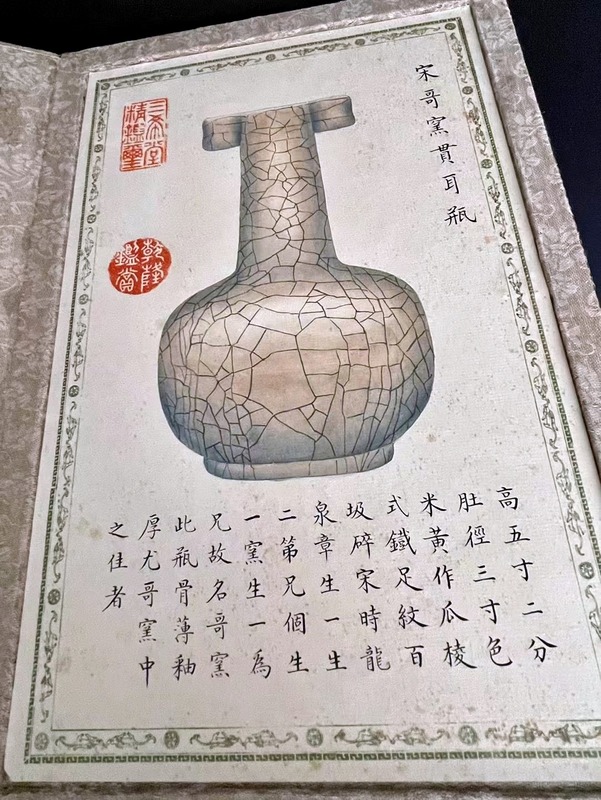 宋哥窯貫耳瓶
三希堂
精鑑璽
乾隆
鑑賞
高五寸二分
肚徑三寸色
米黃作瓜棱
式鐵足紋百
圾碎宋時龍
泉章生一生
二第兄個生
一窯生一為
兄故名哥窯
此瓶骨薄釉
厚尤哥窯中
之佳者